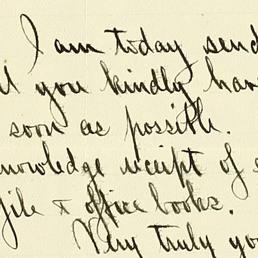 I am today send
you kindly hav
soon as possible.
knowledge receipt of
file & office books.
Very truly yo